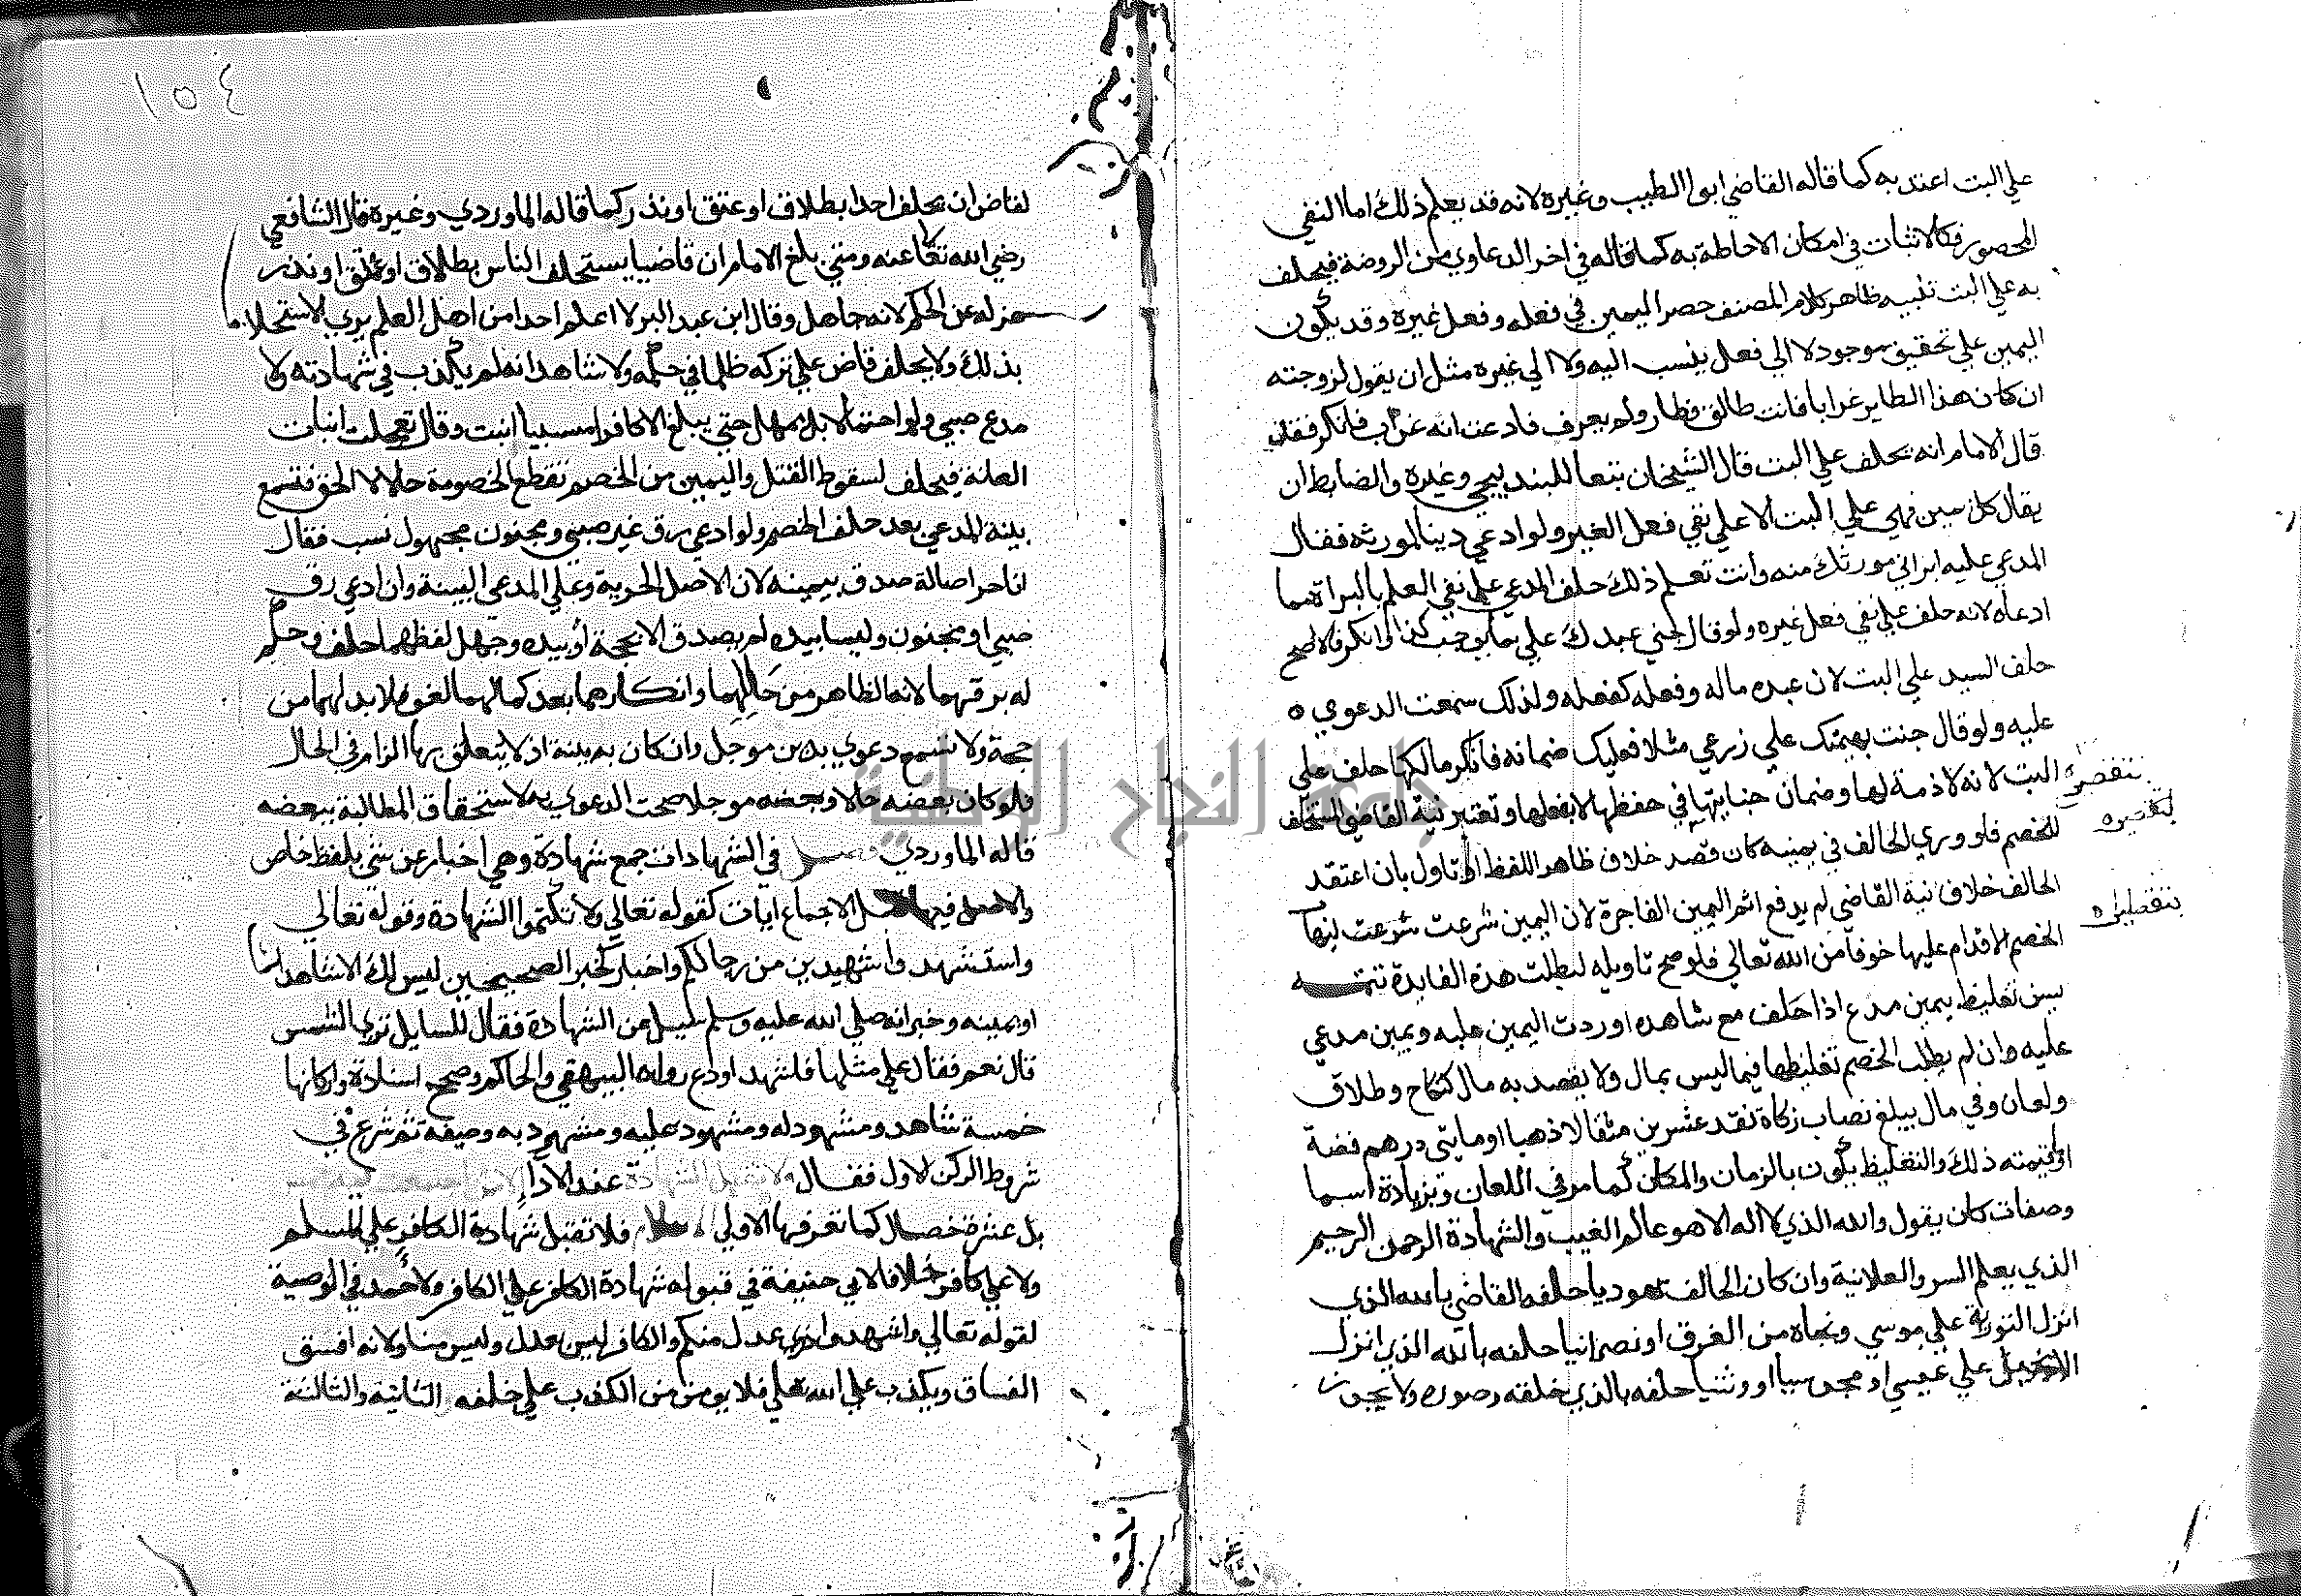 علي البت اعتد به كما قاله القاضي ابوا الطيب وغيره لانه قد يعلم ذلك اما النفي
المحصور فكالاثبات في امكان الاحاطة به كما قاله في اخر الدعاوي من الروضة فيحلف
به علي البت تنبيه ظاهر كلام المصنف حصر اليمين في فعله وفعل غيره وقد يكون
اليمين علي تحقيق موجود لا الي فعل ينسب اليه ولا الي غيره مثل ان يقول لزوجته
ان كان هذا الطاير غرابا فانت طالق فطار ولم يعرف فادعت انه غراب فانكر فقد
قال الامام انه يحلف علي البت قال الشيخان تبعا للبندنيجي وغيره والضابط ان
يقال كل يمين فهي علي البت الا علي نفي فعل الغير ولو ادعي دينا لمورثه فقال
المدعي عليه ابراني مورثك منه وانت تعلم ذلك حلف المدعي علي نفي العلم بالبراة مما
ادعاه لانه حلف علي نفي فعل غيره ولو قال جني عبدك علي بما يوجب كذا وانكر فالاصح
حلف السيد علي البت لان عبده ماله وفعله كفعله ولذلك سمعت الدعوي ه
عليه ولو قال جنت بهيمتك علي زرعي مثلا فعليك ضمانه فانكر مالكها حلف علي
البت لانه لا ذمة لها وضمان جنايتها في حفظها لا بفعلها وتعتبر نية القاضي المستحلف
بتقصيره
لتقصيره
للخصم فلو وري الحالف في يمينه كان قصد خلاف ظاهر اللفظ او تاول بان اعتقد
الحالف خلاف نية القاضي لم يدفع اثم اليمين الفاجرة لان اليمين شرعت شرعت ليهاب
الخصم الاقدام عليها خوفا من الله تعالي فلو صح تاويله لبطلت هذه الفايدة تتمه
يسن تغليظ يمين مدع اذا حلف مع شاهده او ردت اليمين عليه ويمين مدعي
عليه وان لم يطلب الخصم تغليظها فيما ليس بمال ولا يقصد به مال كنكاح وطلاق
ولعان وفي مال يبلغ نصاب زكاة نقد عشرين مثقالا ذهبا او مايتي درهم فضة
او قيمته ذلك والتغليظ يكون بالزمان والمكان كما مر في اللعان وبزيادة اسما
وصفات كان يقول والله الذي لا اله الا هو عالم الغيب والشهادة الرحمن الرحيم
الذي يعلم السر والعلانية وان كان الحالف يهوديا حلفه القاضي بالله الذي
انزل التورية علي موسي ونجاه من الغرق او نصرانيا حلفه بالله الذي انزل
الانجيل علي عيسي او مجوسيا او وثنيا حلفه بالذي خلقه وصوره ولا يجوز
١٥٤
لقاض ان يحلف احدا بطلاق او عتق او نذر كما قاله الماوردي وغيره قال الشافعي
رضي الله تعا عنه ومتي بلغ الامام ان قاضيا يستحلف الناس بطلاق او عتق او نذر
عزله عن الحكم لانه جاهل وقال ابن عبد البر لا اعلم احدا من اهل العلم يري الاستحلاف
بذلك ولا يحلف قاض علي تركه ظلما في حكمه ولا شاهد انه لم يكذب في شهادته ولا
مدع صبي ولو احتمالا بل يمهل حتي يبلغ الا كافرا مسبيا انبت وقال تعجلت انبات
العانة فيحلف لسقوط القتل واليمين من الخصم تقطع الخصومة حالا لا الحق فتسمع
بينة المدعي بعد حلف الخصم ولو ادعي رق غير صبي ومجنون مجهول نسب فقال
انا حر اصالة صدق بيمينه لان الاصل الحرية وعلي المدعي البينة وان ادعي رق
صبي او مجنون وليسا بيده لم يصدق الا بحجة او بيده وجهل لقطهما حلف وحكم
له برقهما لانه الظاهر من حالهما وانكارهما بعد كمالهما لغو فلا بد لهما من
حجة ولا تسمع دعوي بدين موجل وان كان به بينة اذ لا يتعلق بها الزام في الحال
فلو كان بعضه حالا وبعضه موجلا صحت الدعوي به لاستحقاق المطالبة ببعضه
قاله الماوردي فصل في الشهادات جمع شهادة وهي اخبار عن شي بلفظ خاص
والاصل فيها قبل الاجماع ايات كقوله تعالي ولا تكتموا الشهادة وقوله تعالي
واستشهدوا شهيدين من رجالكم واخبار كخبر الصحيحين ليس لك الا شاهداك
او يمينه وخبر انه صلي الله عليه وسلم سيل عن الشهادة فقال للسايل تري الشمس
قال نعم فقال علي مثلها فاشهد او دع رواه البيهقي والحاكم وصحح اسناده واركانها
خمسة شاهد ومشهود له ومشهود عليه ومشهود به وصيغة ثم شرع في
شروط الركن الاول فقال ولا تقبل الشهادة عند الادا
بل عشرة خصال كما تعرفها الاولي الاسلام فلا تقبل شهادة الكافر علي المسلم
ولا علي كافر خلافا لابي حنيفة في قبوله شهادة الكافر علي الكافر ولاحمد في الوصية
لقوله تعالي واشهدوا ذوي عدل منكم والكافر ليس بعدل وليس منا ولانه افسق
الفساق ويكذب علي الله تعالي فلا يومن من الكذب علي خلقه الثانية والثالثة